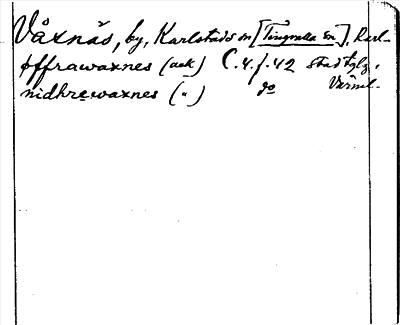 Våxnäs, by, Karlstads sn [Tingvalla sn], Karl-
øffrawaxnes (ack) C.4.f.42 stad tglg,
nidhrewaxnes (") do Värml.